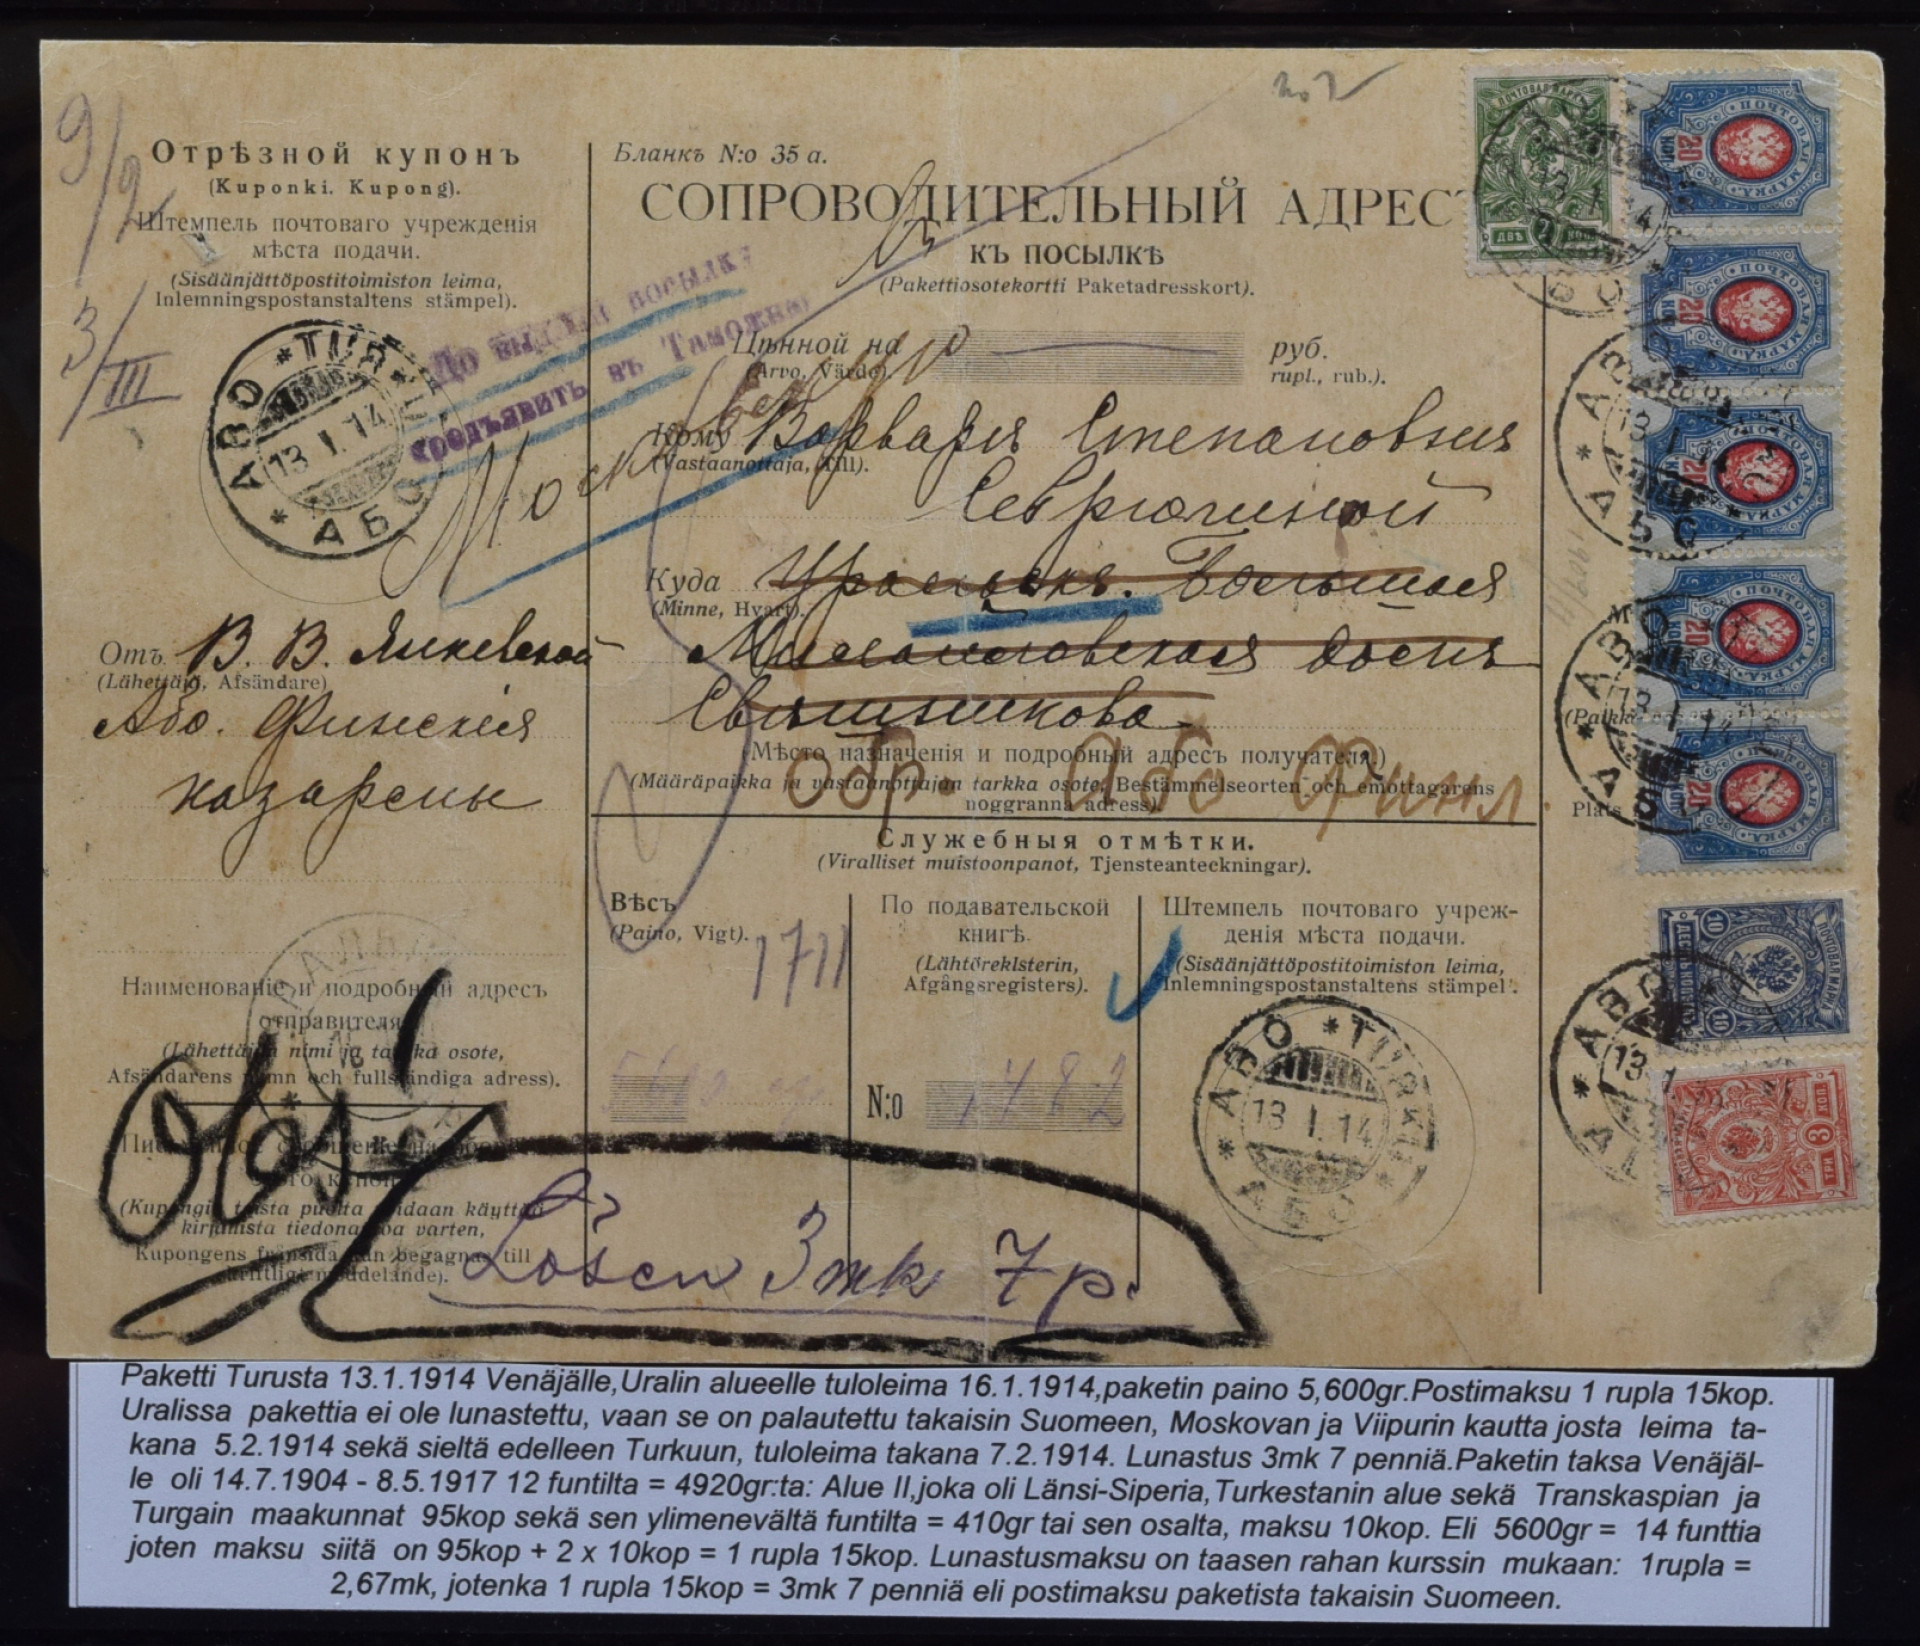 9/2
3/III
Отрѣзной купонъ
(Kuponki. Kupong).
Штемпель почтоваго учрежденія
мѣста подачи.
(Sisäänjättöpostitoimiston leima,
Inlemningspostanstaltens stämpel).
ABO * TURKU * АБО *
13.I.14
Отъ В. В. Янкевской
(Lähettäjä, Afsändare)
Або. Финскія
казармы
Наименованіе и подробный адресъ
отправителя
(Lähettäjän nimi ja tarkka osote,
Afsändarens namn och fullständiga adress).
(Kupongin toista puolta voidaan käyttää
kirjallista tiedonantoa varten,
Kupongens framsida kan begagnas till
skriftligt meddelande).
Obs!
Бланкъ N:o 35 а.
СОПРОВОДИТЕЛЬНЫЙ АДРЕС
КЪ ПОСЫЛКѢ
(Pakettiosotekortti Paketadresskort).
До выдачи посылку
предъявить въ Таможню
Цѣнной на руб.
(Arvo, Värde). rupl., rub.).
Кому Варваря Степановня
(Vastaanottaja, Till).
Севрюгиной
Куда Уральскъ. Большая
(Minne, Hvart).
Михайловская домъ
Свѣшникова
(Мѣсто назначенія и подробный адресъ получателя.)
обр. Або Финл.
(Määräpaikka ja vastaanottajan tarkka osote, Bestämmelseorten och emottagarens
noggranna adress).
Служебныя отмѣтки.
(Viralliset muistoonpanot, Tjensteanteckningar).
Вѣсъ
(Paino, Vigt).
1711
По подавательской
книгѣ.
(Lähtöreklsterin,
Afgångsregisters).
N:o 1482
Штемпель почтоваго учреж-
денія мѣста подачи.
(Sisäänjättöpostitoimiston leima,
Inlemningspostanstaltens stämpel).
ABO * TURKU * АБО *
13.I.14
Lösen 3 mk 7 p.
Plats
ДВѢ 2 КОП
ПОЧТОВАЯ МАРКА 20 КОП.
ПОЧТОВАЯ МАРКА 20 КОП.
ПОЧТОВАЯ МАРКА 20 КОП.
ПОЧТОВАЯ МАРКА 20 КОП.
ПОЧТОВАЯ МАРКА 20 КОП.
ПОЧТОВАЯ МАРКА 10
ТРИ 3 КОП
Paketti Turusta 13.1.1914 Venäjälle,Uralin alueelle tuloleima 16.1.1914,paketin paino 5,600gr.Postimaksu 1 rupla 15kop.
Uralissa pakettia ei ole lunastettu, vaan se on palautettu takaisin Suomeen, Moskovan ja Viipurin kautta josta leima ta-
kana 5.2.1914 sekä sieltä edelleen Turkuun, tuloleima takana 7.2.1914. Lunastus 3mk 7 penniä.Paketin taksa Venäjäl-
le oli 14.7.1904 - 8.5.1917 12 funtilta = 4920gr:ta: Alue II,joka oli Länsi-Siperia,Turkestanin alue sekä Transkaspian ja
Turgain maakunnat 95kop sekä sen ylimenevältä funtilta = 410gr tai sen osalta, maksu 10kop. Eli 5600gr = 14 funttia
joten maksu siitä on 95kop + 2 x 10kop = 1 rupla 15kop. Lunastusmaksu on taasen rahan kurssin mukaan: 1rupla =
2,67mk, jotenka 1 rupla 15kop = 3mk 7 penniä eli postimaksu paketista takaisin Suomeen.